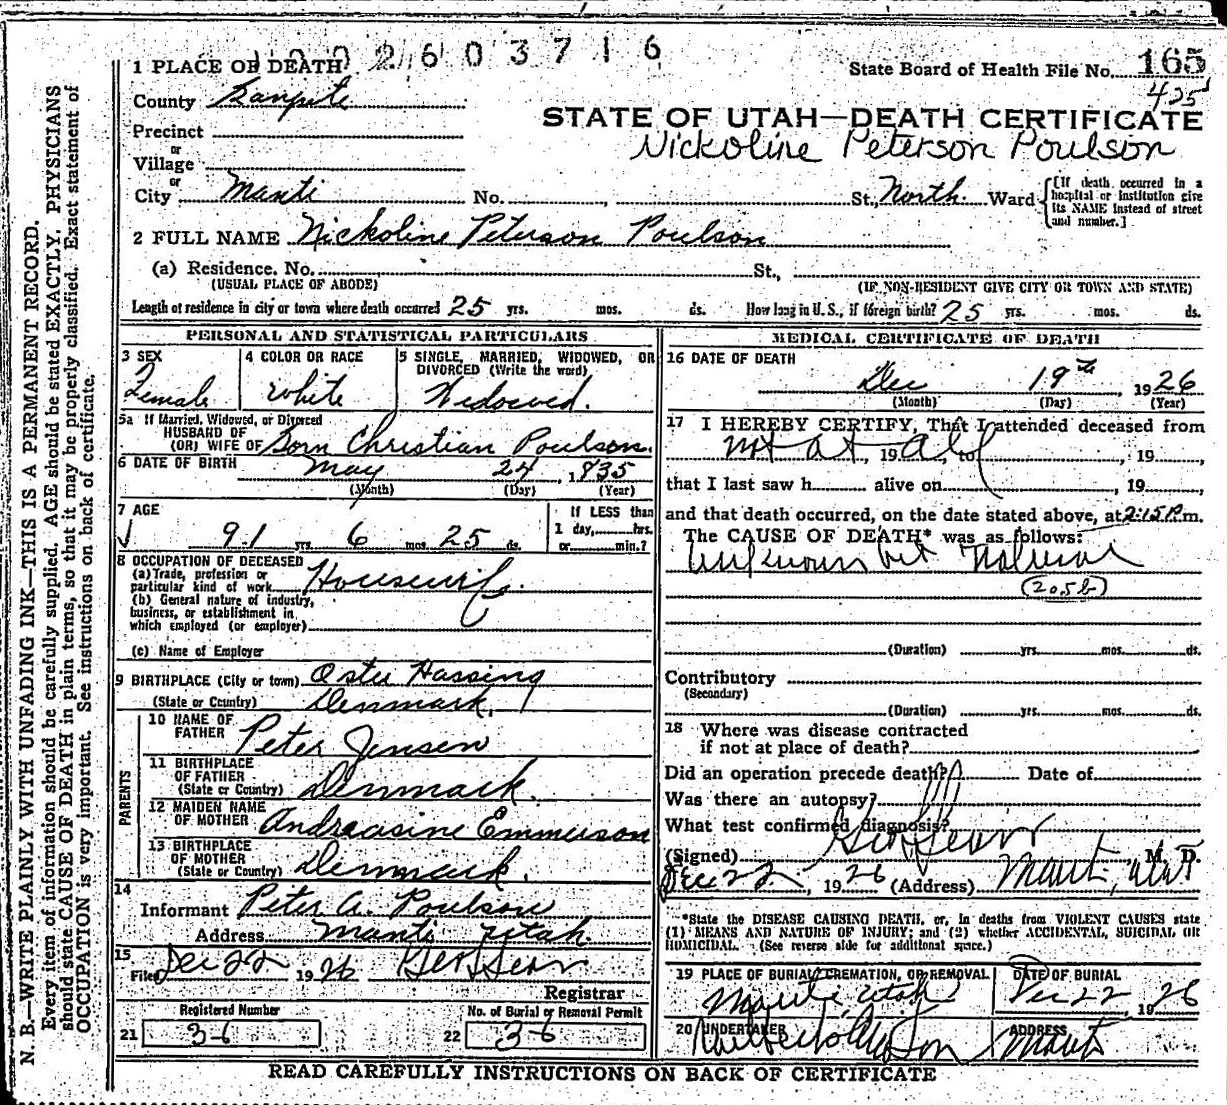 1002603716
1 PLACE OF DEATH
State Board of Health File No. 165
425
County Sanpete
STATE OF UTAH—DEATH CERTIFICATE
Precinct
Nickoline Peterson Poulson
or
Village
or
City Manti No. , St., North. Ward
[If death occurred in a hospital or institution give its NAME instead of street and number.]
2 FULL NAME Nickoline Peterson Poulson
(a) Residence. No. St.,
(USUAL PLACE OF ABODE) (IF NON-RESIDENT GIVE CITY OR TOWN AND STATE)
Length of residence in city or town where death occurred 25 yrs. mos. ds. How long in U. S., if foreign birth? 25 yrs. mos. ds.
PERSONAL AND STATISTICAL PARTICULARS
3 SEX
Female
4 COLOR OR RACE
White
5 SINGLE, MARRIED, WIDOWED, OR DIVORCED (Write the word)
Widowed.
5a If Married, Widowed, or Divorced
HUSBAND OF
(OR) WIFE OF Sorn Christian Poulson.
6 DATE OF BIRTH May 24, 1835
(Month) (Day) (Year)
7 AGE
91 yrs. 6 mos. 25 ds.
If LESS than
1 day, hrs.
or min.?
8 OCCUPATION OF DECEASED
(a) Trade, profession or
particular kind of work Housewife.
(b) General nature of industry,
business, or establishment in
which employed (or employer)
(c) Name of Employer
9 BIRTHPLACE (City or town) Oster Hassing
(State or Country) Denmark.
PARENTS
10 NAME OF
FATHER Peter Jensen
11 BIRTHPLACE
OF FATHER
(State or Country) Denmark.
12 MAIDEN NAME
OF MOTHER Andreasine Emmerson
13 BIRTHPLACE
OF MOTHER
(State or Country) Denmark.
14
Informant Peter A. Poulson
Address Manti Utah.
15
Filed Dec 22 1926
Registrar
Registered Number
21 36
No. of Burial or Removal Permit
22 36
MEDICAL CERTIFICATE OF DEATH
16 DATE OF DEATH
Dec 19th 1926
(Month) (Day) (Year)
17 I HEREBY CERTIFY, That I attended deceased from
not at all, 19 , to , 19
that I last saw h alive on , 19
and that death occurred, on the date stated above, at 2:15 P.m.
The CAUSE OF DEATH* was as follows:
Unknown but Natural
(205b)
(Duration) yrs. mos. ds.
Contributory
(Secondary)
(Duration) yrs. mos. ds.
18 Where was disease contracted
if not at place of death?
Did an operation precede death? Date of
Was there an autopsy?
What test confirmed diagnosis?
(Signed) , M. D.
Dec 22, 1926 (Address) Manti, Utah
*State the DISEASE CAUSING DEATH, or, in deaths from VIOLENT CAUSES state
(1) MEANS AND NATURE OF INJURY; and (2) whether ACCIDENTAL, SUICIDAL OR
HOMICIDAL. (See reverse side for additional space.)
19 PLACE OF BURIAL, CREMATION, OR REMOVAL
Manti, Utah
DATE OF BURIAL
Dec 22, 1926
20 UNDERTAKER
ADDRESS
Manti
READ CAREFULLY INSTRUCTIONS ON BACK OF CERTIFICATE
N. B.—WRITE PLAINLY WITH UNFADING INK—THIS IS A PERMANENT RECORD.
Every item of information should be carefully supplied. AGE should be stated EXACTLY. PHYSICIANS
should state CAUSE OF DEATH in plain terms, so that it may be properly classified. Exact statement of
OCCUPATION is very important. See instructions on back of certificate.